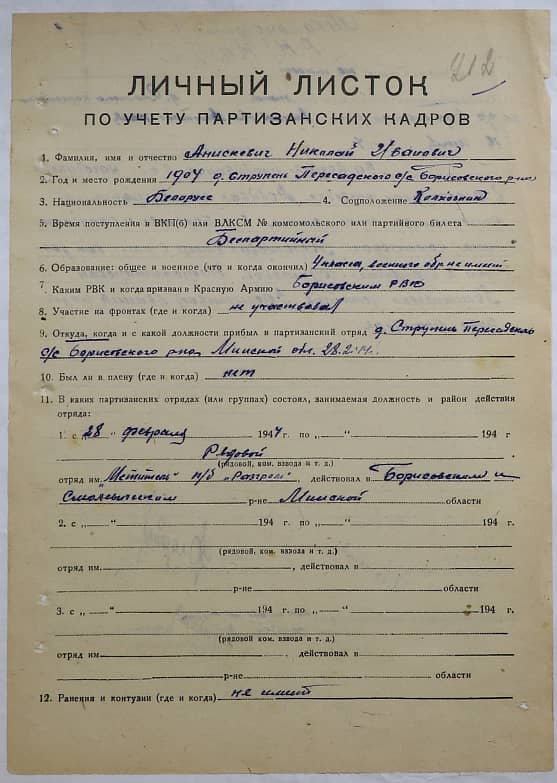 212
ЛИЧНЫЙ ЛИСТОК
ПО УЧЕТУ ПАРТИЗАНСКИХ КАДРОВ
1. Фамилия, имя и отчество Анискевич Николай Иванович
2. Год и место рождения 1904 д. Струпень Пересадского с/с Борисовского р-на
3. Национальность Белорусс 4. Соцположение Колхозник
5. Время поступления в ВКП(б) или ВЛКСМ № комсомольского или партийного билета
Беспартийный
6. Образование: общее и военное (что и когда окончил) 4 класса, военного обр. не имеет
7. Каким РВК и когда призван в Красную Армию Борисовским РВК
8. Участие на фронтах (где и когда) не участвовал
9. Откуда, когда и с какой должности прибыл в партизанский отряд д. Струпень
с/с Борисовского р-на, Минской обл. 28.2.44.
10. Был ли в плену (где и когда) нет
11. В каких партизанских отрядах (или группах) состоял, занимаемая должность и район действия
отряда:
1. с „28“ февраля 1944 г. по „ “ 194 г
Рядовой
(рядовой, ком. взвода и т. д.)
отряд им. "Мститель" п/б "Разгром", действовал в Борисовском и
Смолевичском р-не Минской области
2. с „ “ 194 г. по „ “ 194 г.
(рядовой, ком. взвода и т. д.)
отряд им. , действовал в
р-не области
3. с „ “ 194 г. по „ “ 194 г.
(рядовой ком. взвода и т. д.)
отряд им , действовал в
р-не области
12. Ранения и контузии (где и когда) не имеет